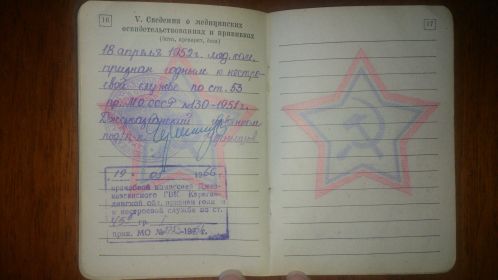 16
V. Сведения о медицинских
освидетельствованиях и прививках
18 апреля 1952г. мед. ком.
признан годным к нестро-
евой службе по ст. 53
пр. МО СССР №130-1951г.
Джезказганский
подп-к
19 - 1966
врачебной комиссией Джез-
казганского ГВК Караган-
динской обл. признан годн
к нестроевой службе по ст.
гр. I
прик. МО
17